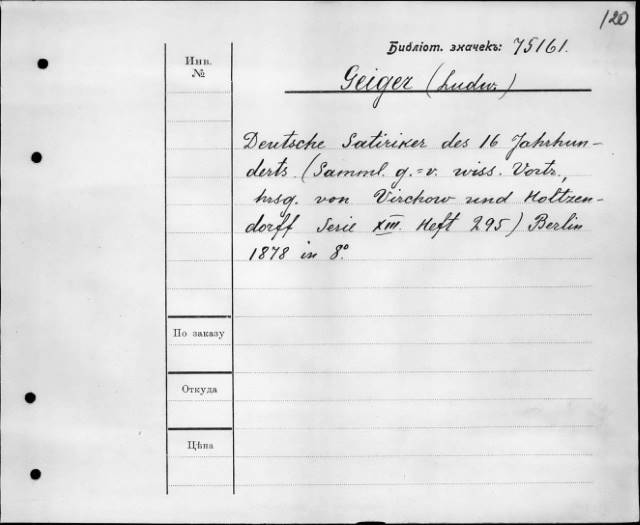 120
Библіот. значекъ: 75161.
Инв.
№
Geiger (Ludw.)
Deutsche Satiriker des 16 Jahrhun-
derts. (Samml. g.=v. wiss. Vortr.,
hrsg. von Virchow und Holtzen-
dorff Serie XIII. Heft 295) Berlin
1878 in 8°.
По заказу
Откуда
Цѣна